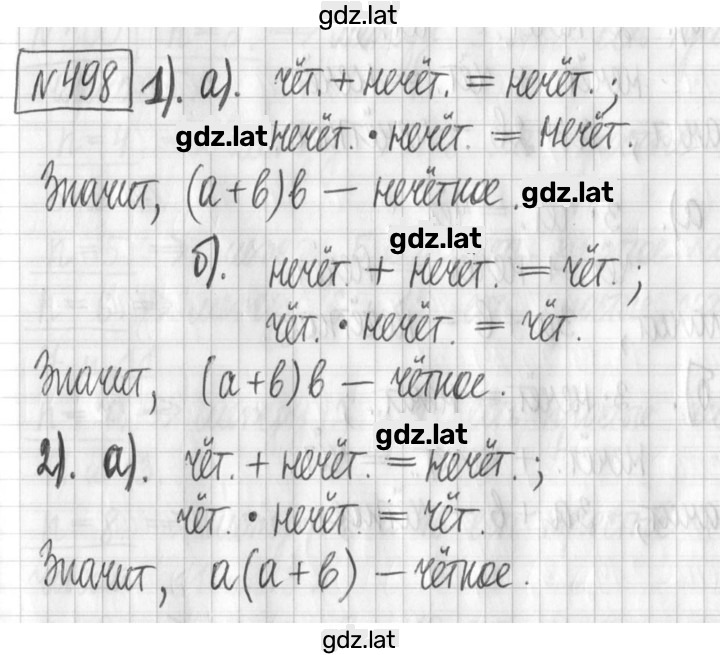 gdz.lat
№498 1). а). чёт. + нечёт. = нечёт.;
gdz.lat нечёт. · нечёт. = нечёт.
Значит, (а+в)в — нечётное. gdz.lat
gdz.lat
б). нечёт. + нечёт. = чёт.;
чёт. · нечёт. = чёт.
Значит, (а+в)в — чётное.
gdz.lat
2). а). чёт. + нечёт. = нечёт.;
чёт. · нечёт. = чёт.
Значит, а(а+в) — чётное.
gdz.lat